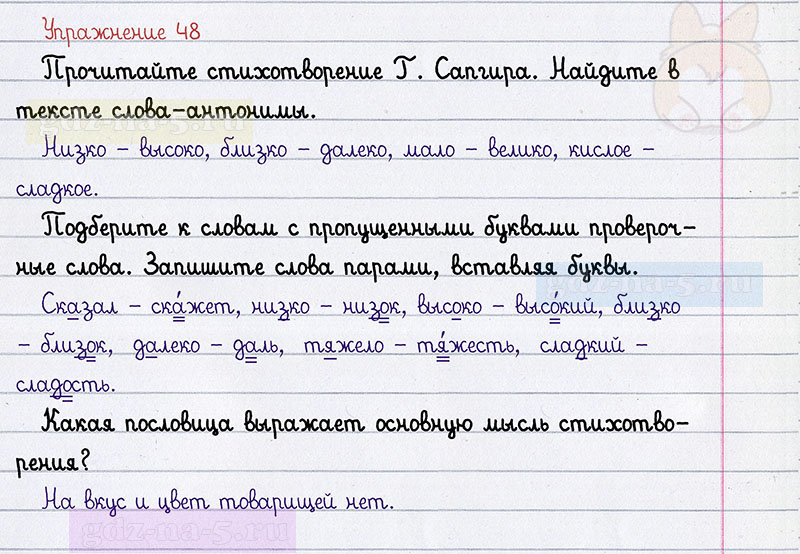 Упражнение 48
Прочитайте стихотворение Г. Сапгира. Найдите в
тексте слова-антонимы.
Низко – высоко, близко – далеко, мало – велико, кислое –
сладкое.
Подберите к словам с пропущенными буквами провероч-
ные слова. Запишите слова парами, вставляя буквы.
Сказал – ска́жет, низко – низок, высоко – высо́кий, близко
– близок, далеко – даль, тяжело – тя́жесть, сладкий –
сладость.
Какая пословица выражает основную мысль стихотво-
рения?
На вкус и цвет товарищей нет.
gdz-na-5.ru
gdz-na-5.ru
gdz-na-5.ru